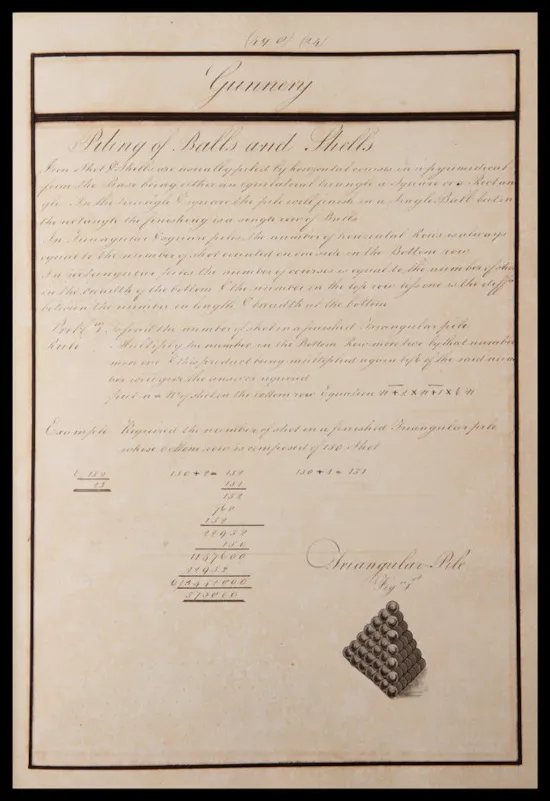 Gunnery
Piling of Balls and Shells
Iron Shot & Shells are usually piled by horizontal courses in a pyramidical
form the Base being either an equilateral triangle a Square or a Rectan
gle In the triangle & square the pile will finish in a Single Ball but in
the rectangle the finishing is a single row of Balls
In Triangular & square piles the number of horizontal Rows is always
equal to the number of shot counted on one side in the Bottom row
In rectangular piles the number of courses is equal to the number of shot
in the breadth of the bottom & the number on the top row less one is the diffce
between the number in length & breadth at the bottom
To find the number of shot in a finished Triangular pile
Rule Multiply the number in the Bottom Row more two by that number
more one & this product being multiplied again by 6 of the said num
ber will give the answer required
put n = No of shot in the bottom row Equation n + 2 × n + 1 × 6 n
Example Required the number of shot in a finished Triangular pile
whose bottom row is composed of 150 Shot
6 150 150 + 2 = 152 150 + 1 = 151
25 151
152
760
152
22952
150
1147600
22952
6 3442800
573800
Triangular Pile
Fig 1st